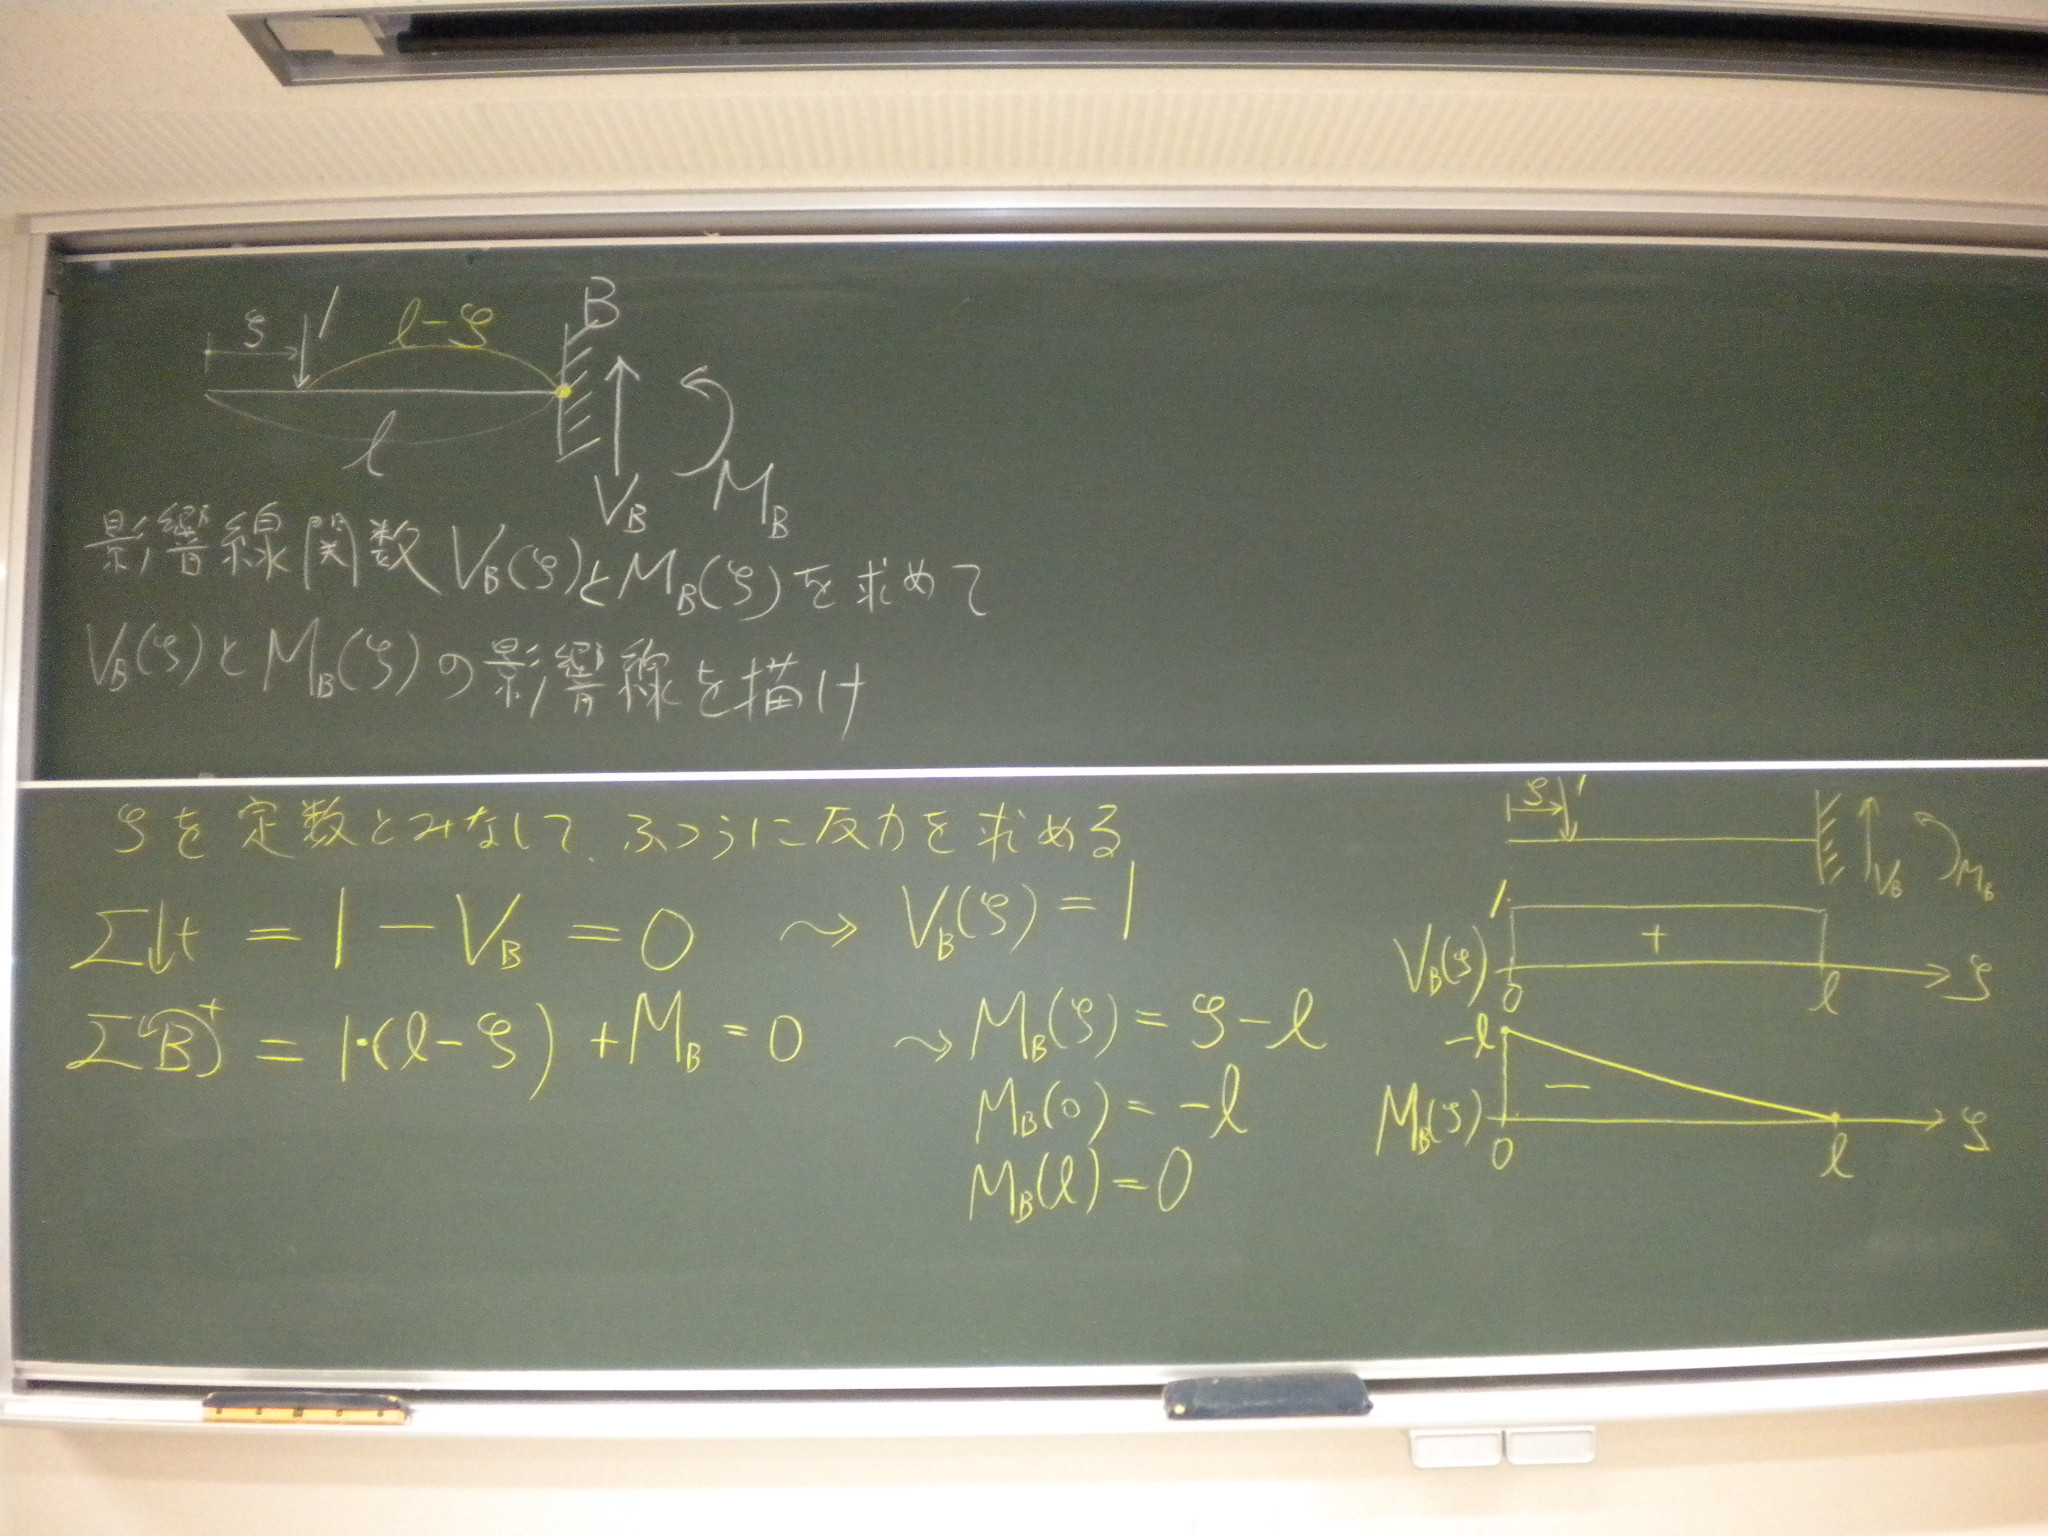 ζ 1 l-ζ B
l
V_B M_B
影響線関数 V_B(ζ)とM_B(ζ)を求めて
V_B(ζ)とM_B(ζ)の影響線を描け
ζを定数とみなして、ふつうに反力を求める
Σ↓+ = 1 - V_B = 0 ⇝ V_B(ζ) = 1
ΣB+ = 1・(l-ζ) + M_B = 0 ⇝ M_B(ζ) = ζ - l
M_B(0) = -l
M_B(l) = 0
ζ 1
V_B M_B
1
V_B(ζ) + ζ
0 l
-l
M_B(ζ) - ζ
0 l